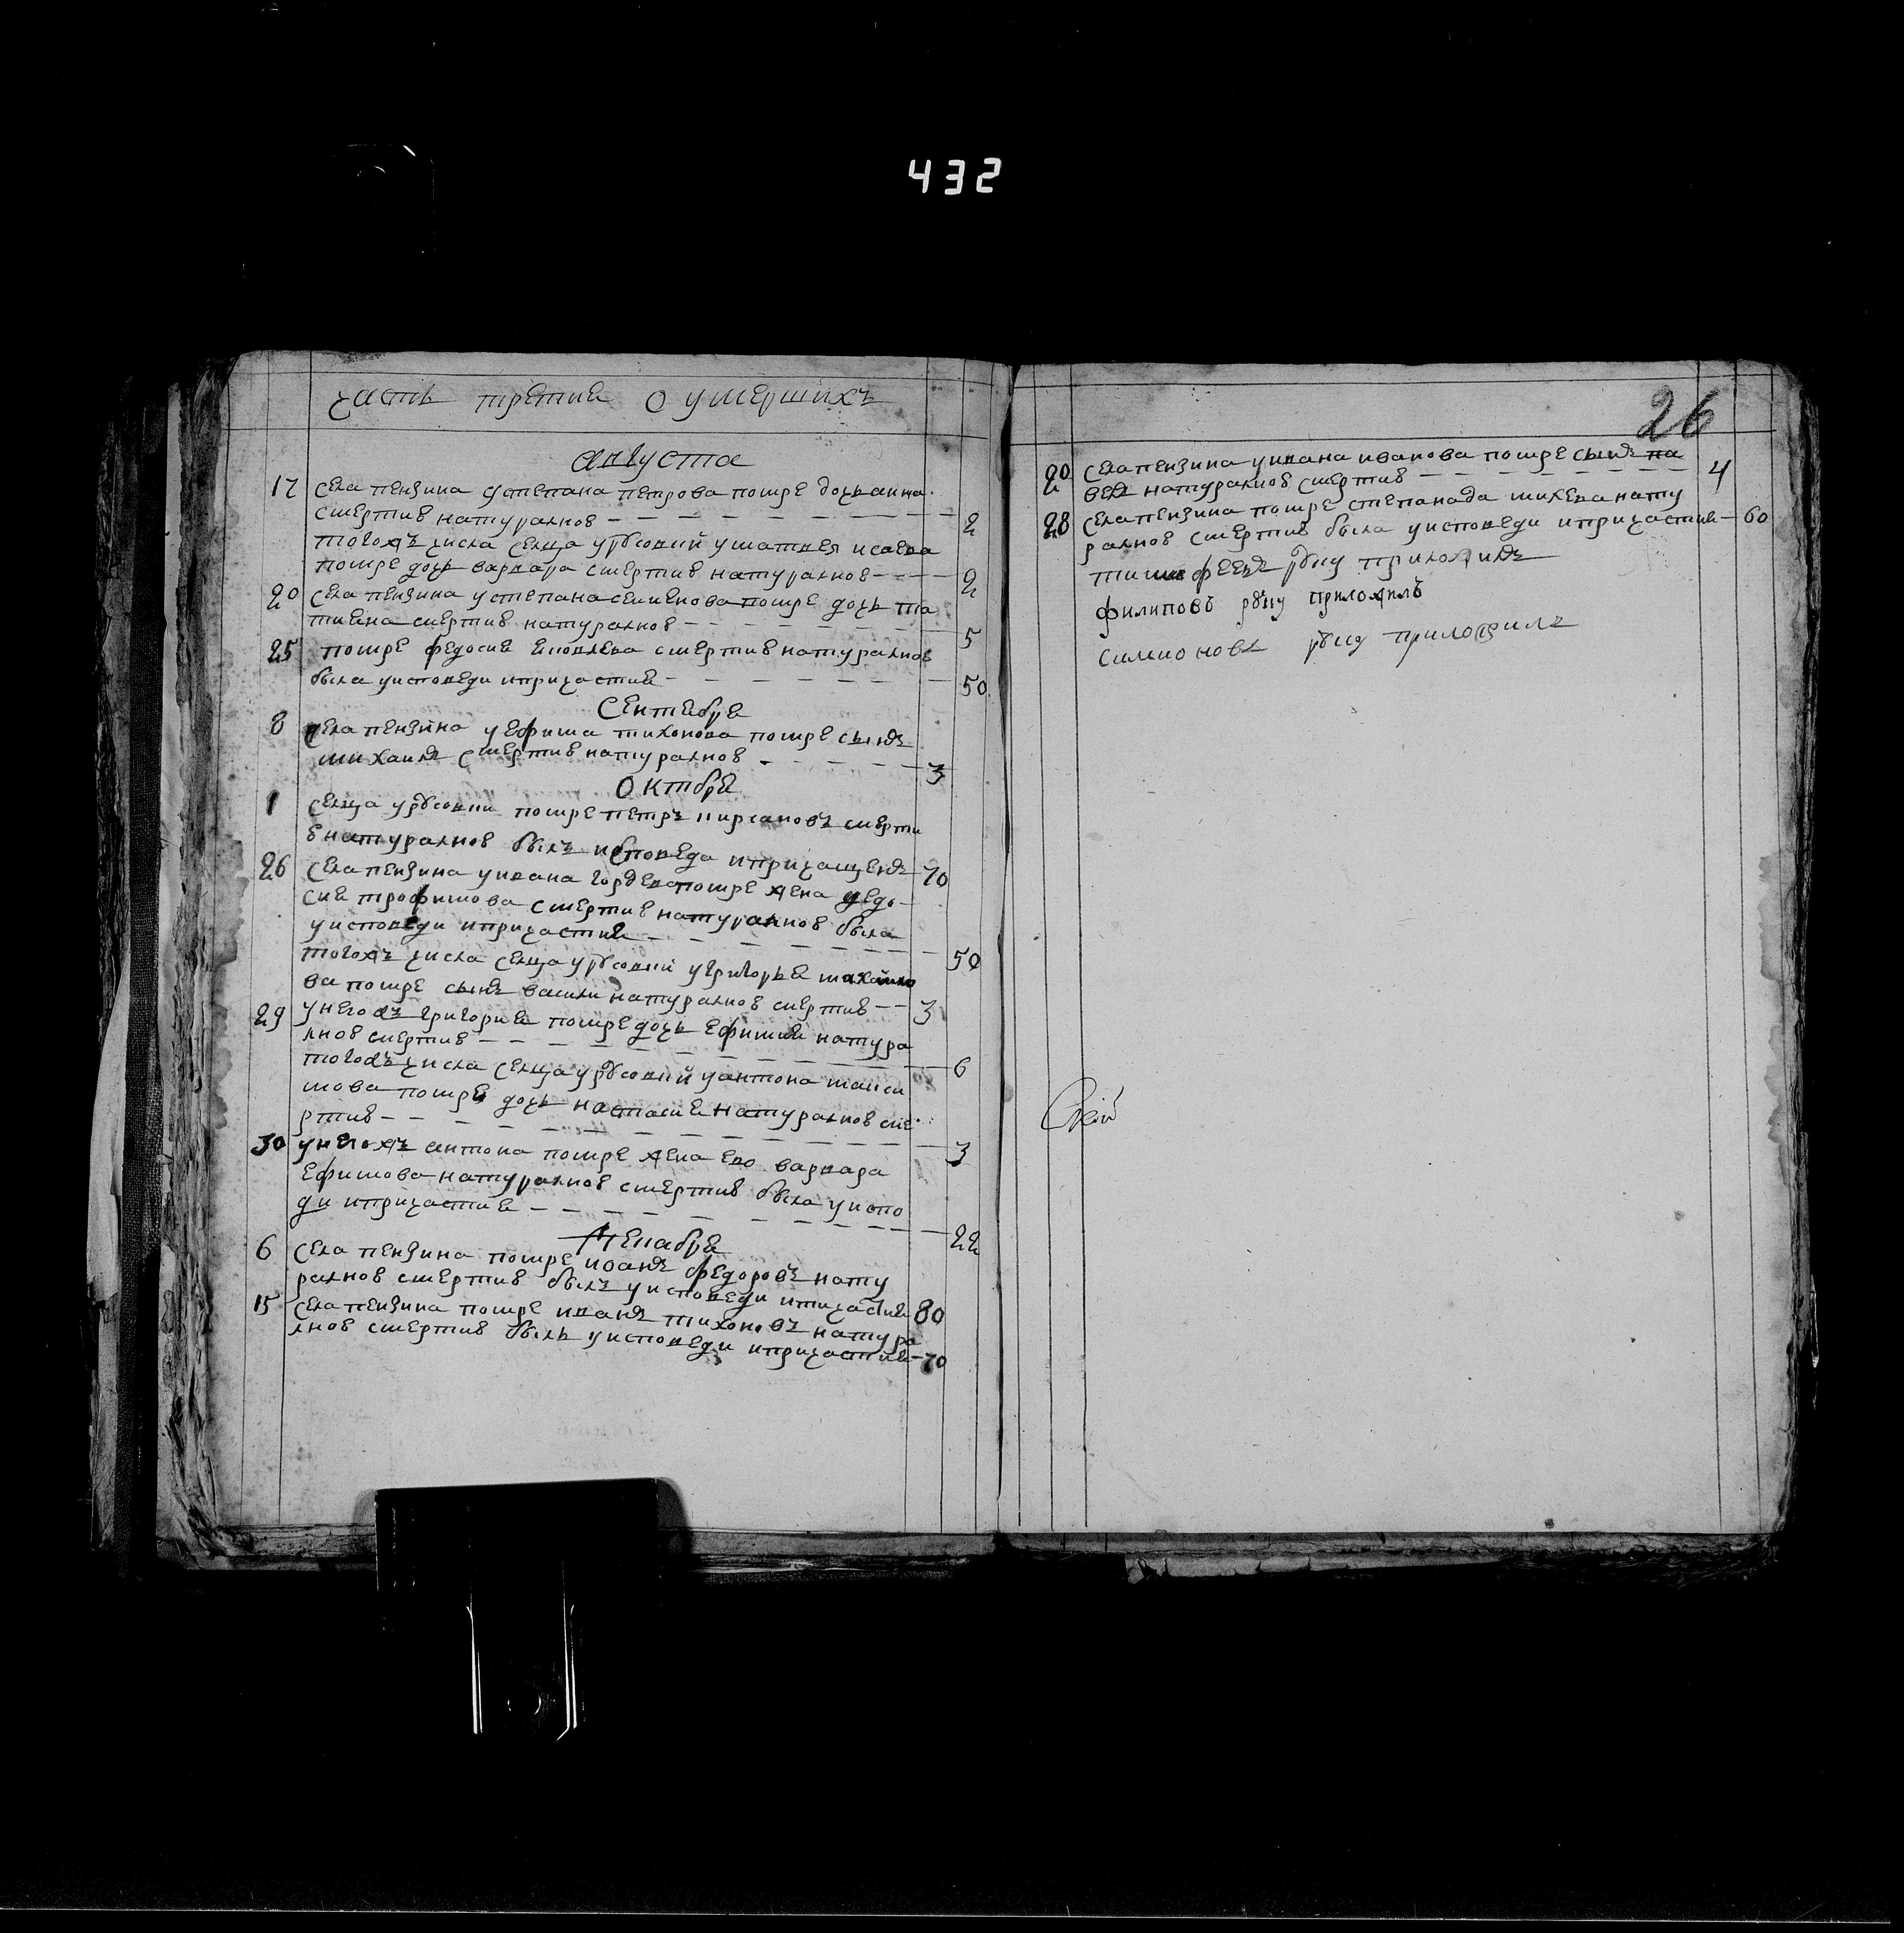 432
часть третия о умершихъ
августа
17 села пензина устепана петрова помре дочь анна
смертию натуралною 2
тогожъ числа селца урусовки уматвея исаева
помре дочь варвара смертию натуралною 2
20 села пензина устепана семенова помре дочь та
тияна смертию натуралною 5
25 помре федосия яковлева смертию натуралною
была уисповеди ипричастия 50
Сентебря
8 села пензина уефима тихонова помре сынъ
михаилъ смертию натуралною 3
Октебря
1 селца урусовки помре петръ кирсановъ смерти
ю натуралною былъ исповеда ипричащенъ 70
26 села пензина уивана гордева помре жена федо
сия трофимова смертию натуралною была
уисповеди ипричастия 50
тогожъ числа селца урусовки угригорья михайло
ва помре сынъ васили натуралною смертию 3
29 унегожъ григория помре дочь ефимия натура
лною смертию 6
тогожъ числа селца урусовки уантона макси
мова помре дочь настасия натуралною сме
ртию 3
30 унегожъ антона помре жена ево варвара
ефимова натуралною смертию была уиспо
ди ипричастия 22
Декабря
6 села пензина помре иванъ федоровъ нату
ралною смертию былъ уисповеди ипричастия 80
15 села пензина помре иванъ тихоновъ натура
лною смертию былъ уисповеди ипричастия 70
26
20 села пензина уивана иванова помре сынъ па
велъ натуралною смертию 4
28 села пензина помре степанада михева нату
ралною смертию была уисповеди ипричастия 60
тимофеевъ руку приложилъ
филиповъ руку приложилъ
симионовъ руку приложилъ